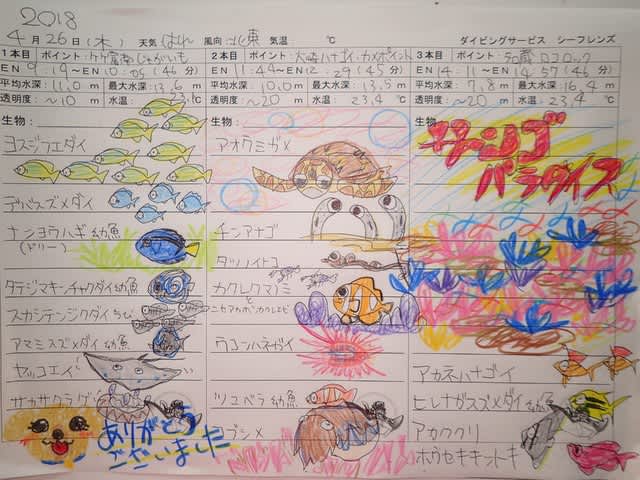 2018
4月26日(木) 天気 はれ 風向: 北東 気温 ℃ ダイビングサービス シーフレンズ
1本目 ポイント:ケケ富南じゃがいも
EN 9:19~EN 10:05(46分)
平均水深:11.0m 最大水深:13.6m
透明度:~10m 水温: ℃
生物:
ヨスジフエダイ
デバスズメダイ
ナンヨウハギ幼魚
(ドリー)
タテジマキンチャクダイ幼魚
スカシテンジクダイ
アマミスズメダイ幼魚
ヤッコエイ
サカサクラゲ
ありがとう
ございました
2本目 ポイント:大崎ハナゴイ・カメポイント
EN 11:44~EN 12:29(45分)
平均水深:10.0m 最大水深:13.5m
透明度:~20m 水温:23.4℃
生物:
アオウミガメ
チンアナゴ
タツノイトコ
カクレクマノミ
と
ニセアカホシカクレエビ
ウコンハネガイ
ツユベラ幼魚
コブシメ
3本目 ポイント:名蔵 ロコロック
EN 14:11~EN 14:57(46分)
平均水深:7.8m 最大水深:16.4m
透明度:~20m 水温:23.4℃
生物:
サンゴ
パラダイス
アカネハナゴイ
ヒレナガスズメダイ幼魚
アカククリ
ホウセキキントキ